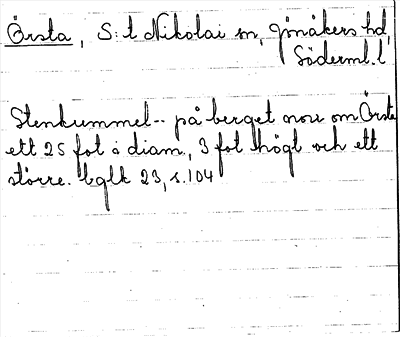 Örsta, S:t Nikolai sn, Jönåkers hd,
Söderml. l.
Stenkummel -- på berget norr om Örsta
ett 25 fot i diam, 3 fot högt och ett
större. bglk 23, s. 104